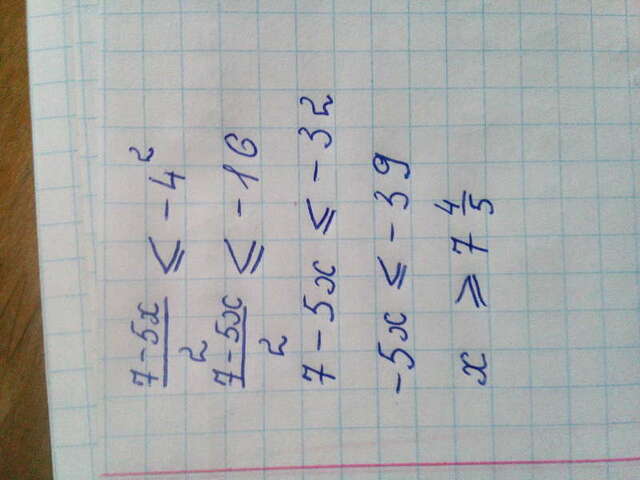 (7-5x)/2 ⩽ -4²
(7-5x)/2 ⩽ -16
7-5x ⩽ -32
-5x ⩽ -39
x ⩾ 7 4/5